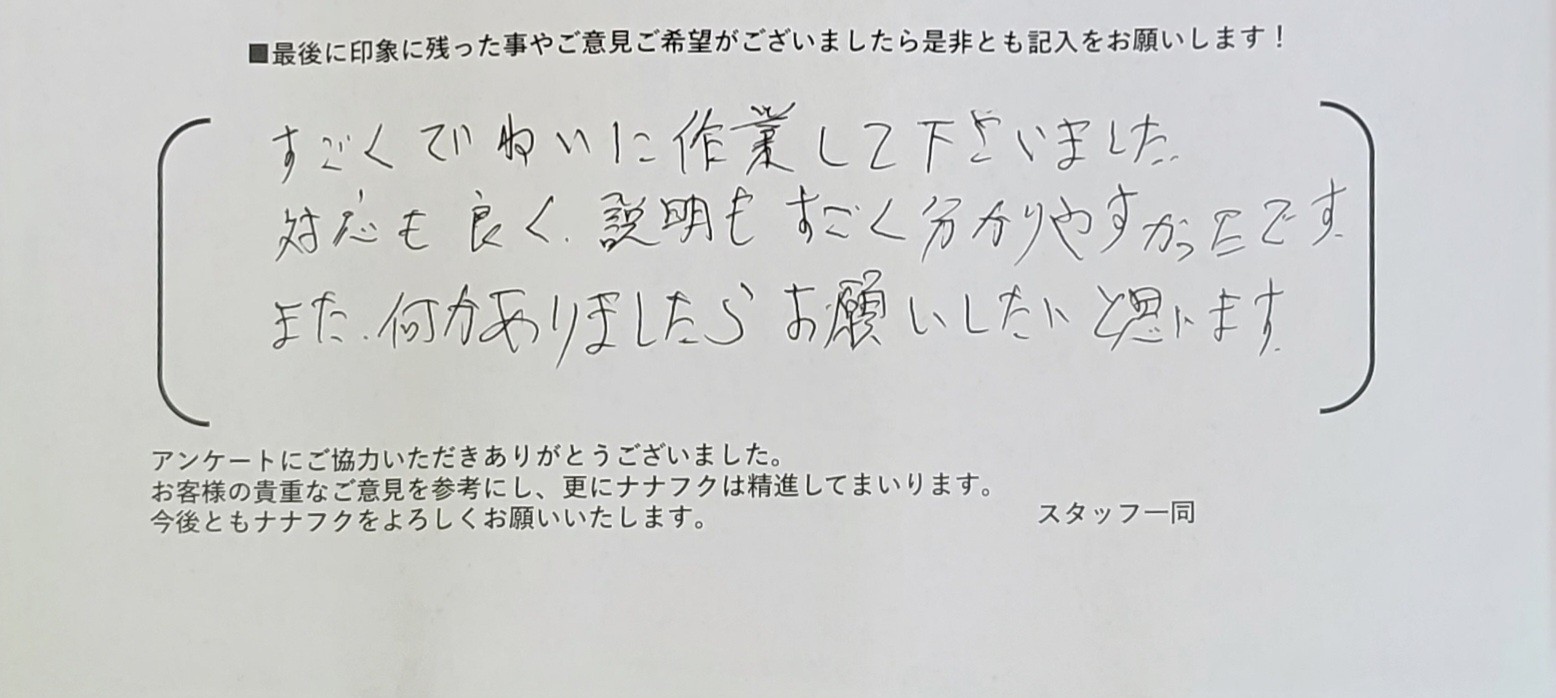 ■最後に印象に残った事やご意見ご希望がございましたら是非とも記入をお願いします！
すごくていねいに作業して下さいました。
対応も良く、説明もすごく分かりやすかったです。
また、何かありましたらお願いしたいと思います。
アンケートにご協力いただきありがとうございました。
お客様の貴重なご意見を参考にし、更にナナフクは精進してまいります。
今後ともナナフクをよろしくお願いいたします。
スタッフ一同